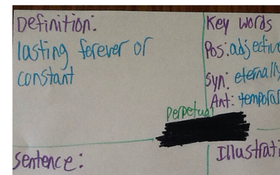 Definition:
lasting forever or
constant
Key words
Pos: adjective
Syn: eternally
Ant: temporar
perpetua
Sentence:
Illustrati